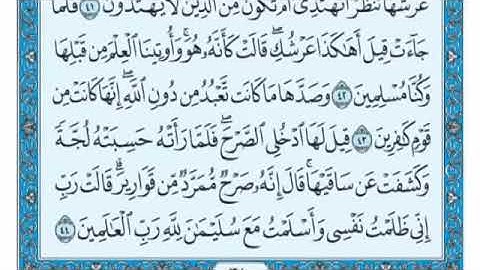 عَرْشَهَا نَنظُرْ أَتَهْتَدِىٓ أَمْ تَكُونُ مِنَ ٱلَّذِينَ لَا يَهْتَدُونَ ٤١ فَلَمَّا
جَآءَتْ قِيلَ أَهَٰكَذَا عَرْشُكِ ۖ قَالَتْ كَأَنَّهُۥ هُوَ ۚ وَأُوتِينَا ٱلْعِلْمَ مِن قَبْلِهَا
وَكُنَّا مُسْلِمِينَ ٤٢ وَصَدَّهَا مَا كَانَت تَّعْبُدُ مِن دُونِ ٱللَّهِ ۖ إِنَّهَا كَانَتْ مِن
قَوْمٍ كَٰفِرِينَ ٤٣ قِيلَ لَهَا ٱدْخُلِى ٱلصَّرْحَ ۖ فَلَمَّا رَأَتْهُ حَسِبَتْهُ لُجَّةً
وَكَشَفَتْ عَن سَاقَيْهَا ۚ قَالَ إِنَّهُۥ صَرْحٌ مُّمَرَّدٌ مِّن قَوَارِيرَ ۗ قَالَتْ رَبِّ
إِنِّى ظَلَمْتُ نَفْسِى وَأَسْلَمْتُ مَعَ سُلَيْمَٰنَ لِلَّهِ رَبِّ ٱلْعَٰلَمِينَ ٤٤